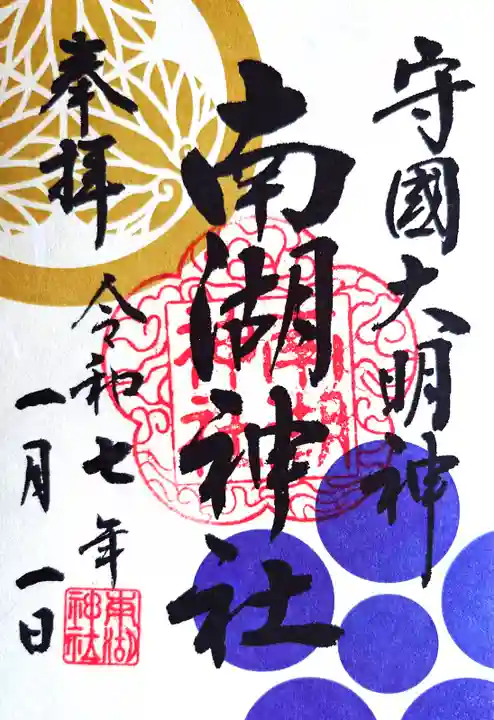 守國大明神
南湖神社
奉拝
令和七年
一月一日
南湖神社
南湖神社